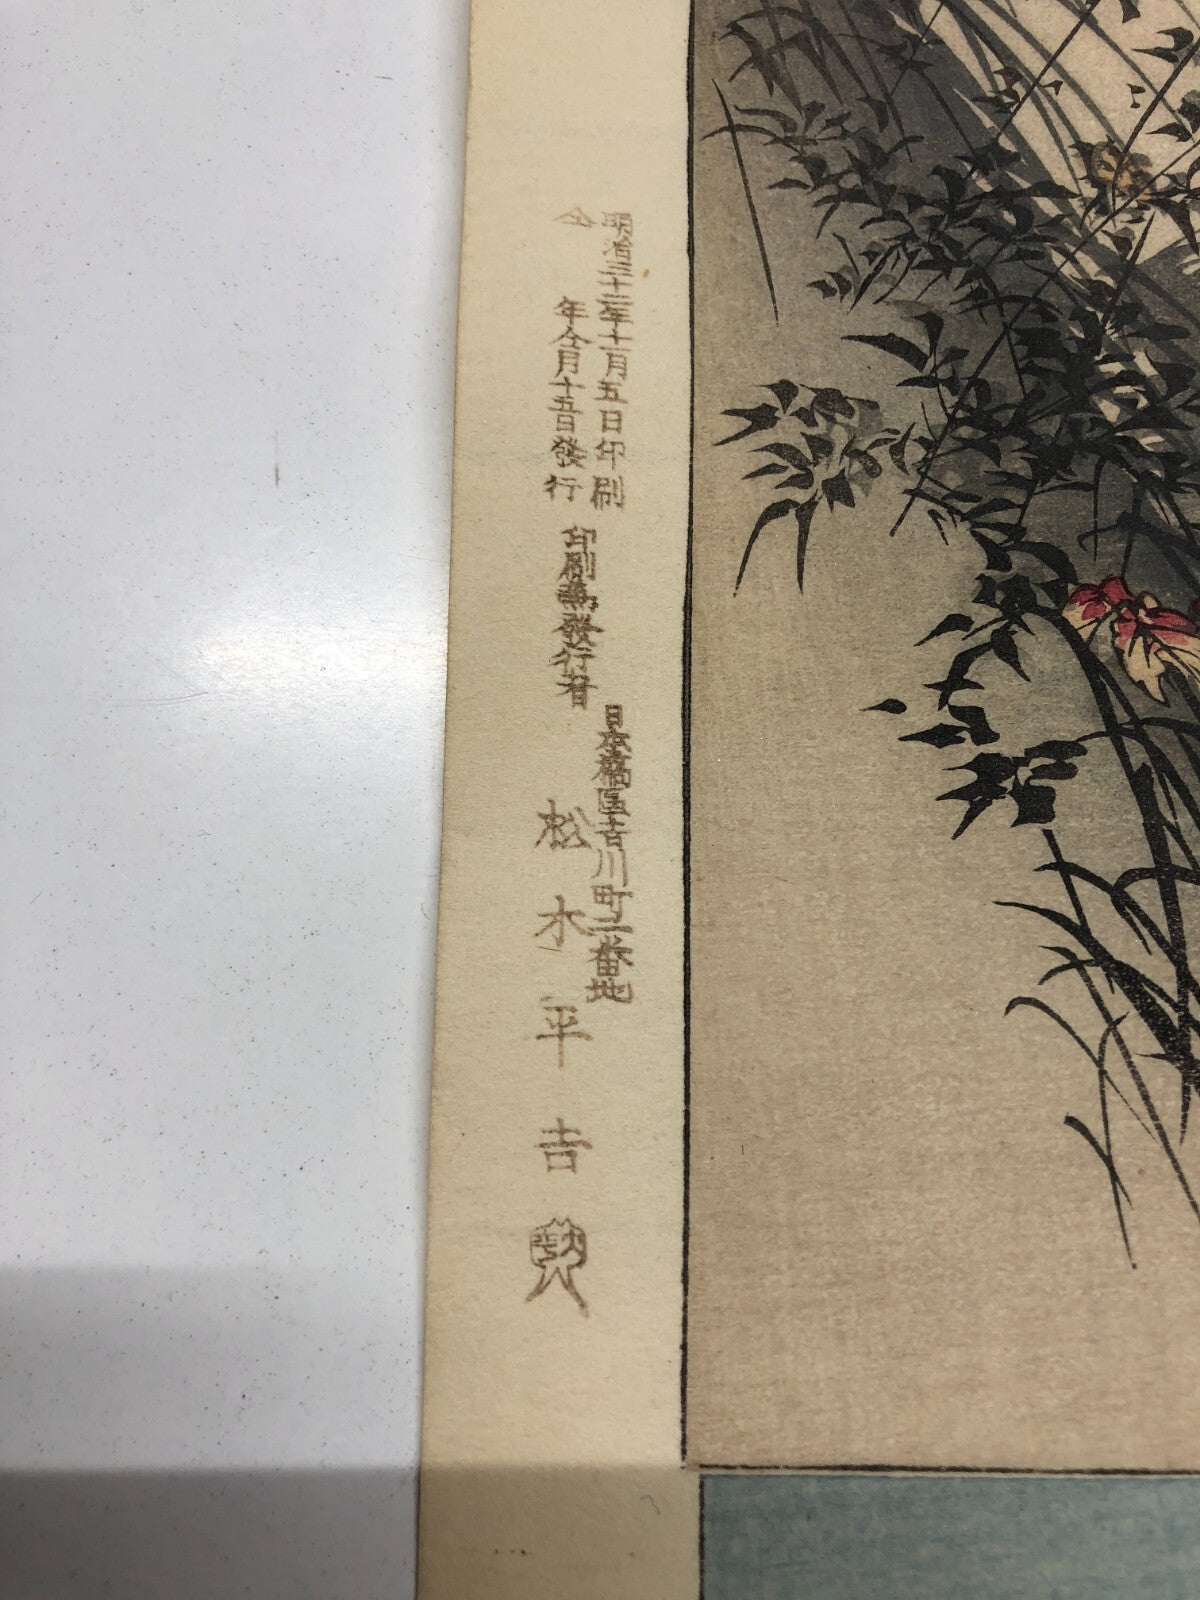 明治三十二年十一月五日印刷
仝 年仝月十五日發行
印刷兼發行者
日本橋區吉川町二番地
松木平吉